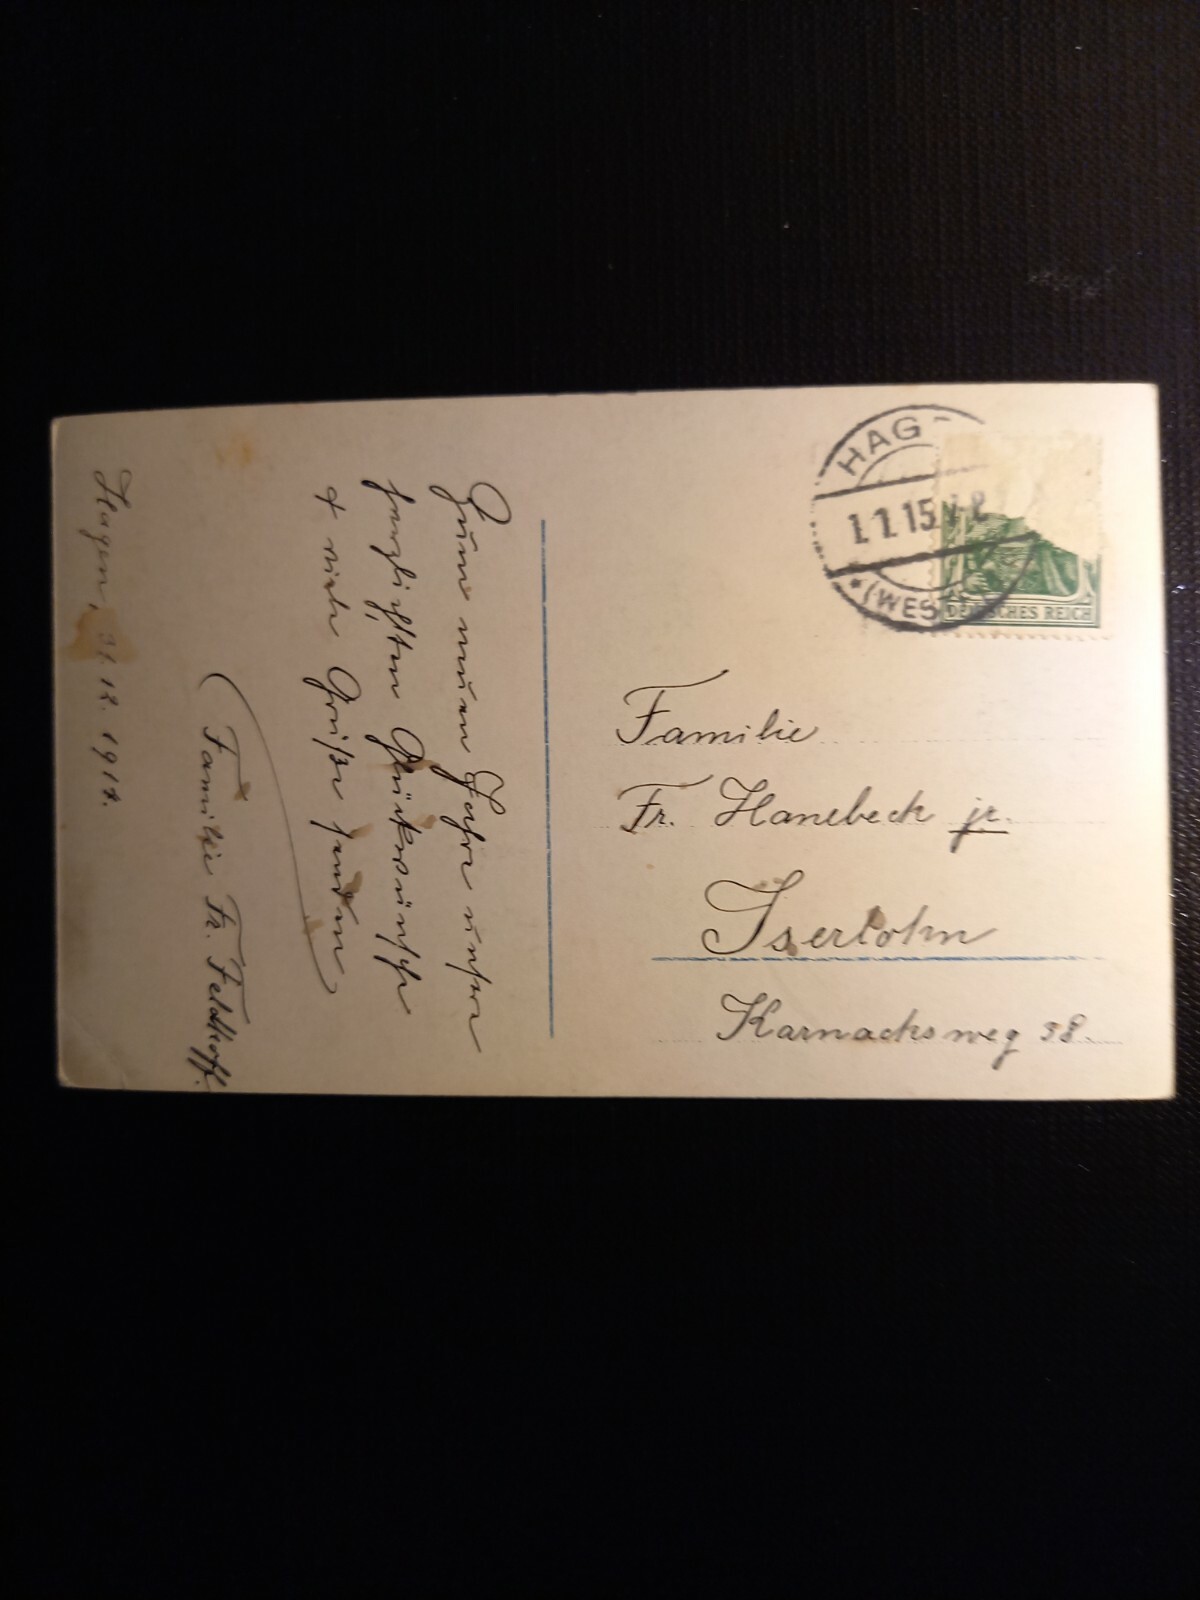 HAG
1.1.15
* (WEST
DEUTSCHES REICH
Familie
Fr. Hanebeck jr.
Iserlohn
Karnacksweg 38.
Zum neuen Jahre unsere
herzlichsten Glückwünsche
& viele Grüße senden
Familie Fr. Feldhoff.
Hagen, 31.12.1914.